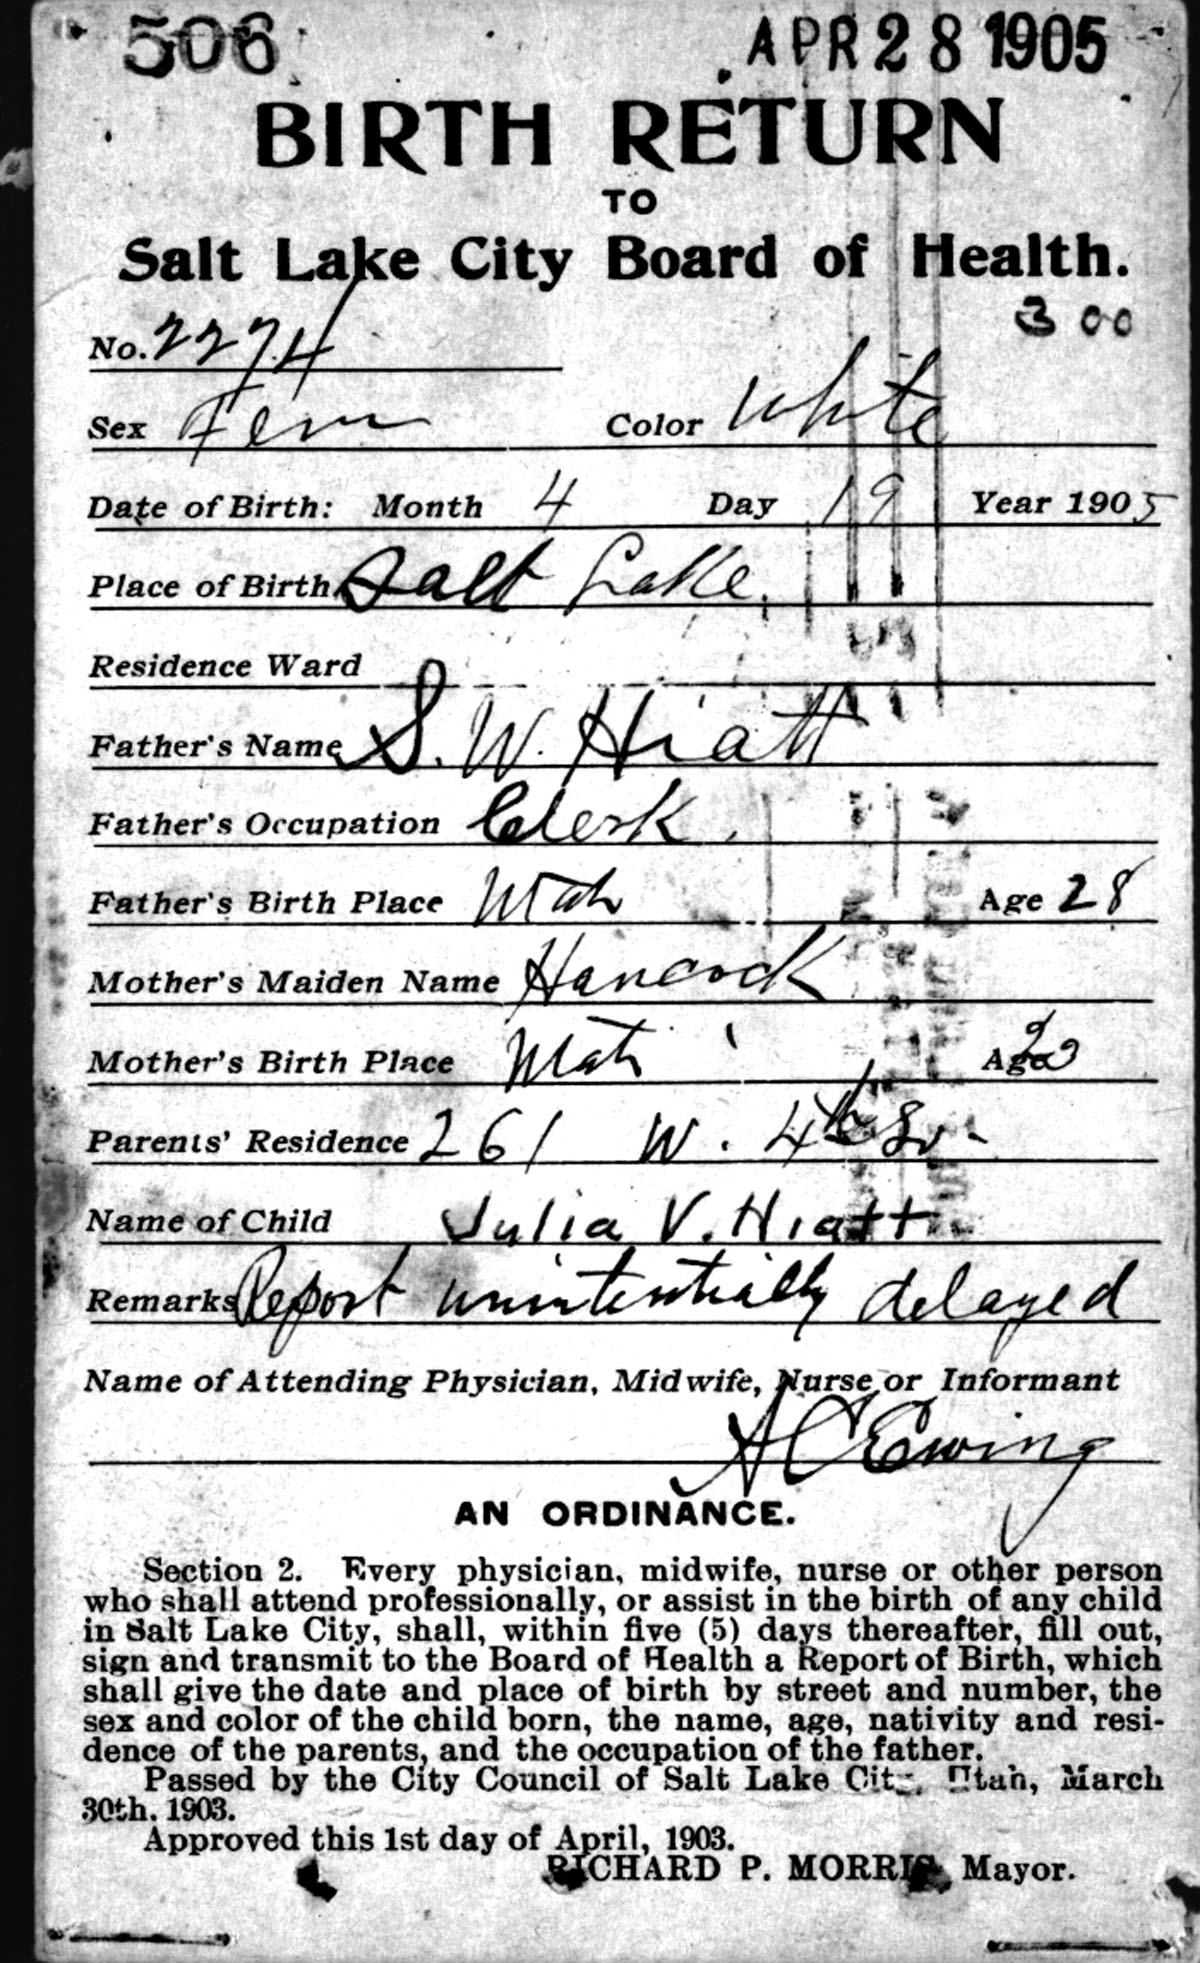 506 APR 28 1905
BIRTH RETURN
TO
Salt Lake City Board of Health.
300
No. 2274
Sex Fem Color White
Date of Birth: Month 4 Day 19 Year 1905
Place of Birth Salt Lake.
Residence Ward
Father's Name S. W. Hiatt
Father's Occupation Clerk.
Father's Birth Place Utah Age 28
Mother's Maiden Name Hancock
Mother's Birth Place Utah Age
Parents' Residence 261 W. 4th So.
Name of Child Julia V. Hiatt
Remarks Report unintentially delayed
Name of Attending Physician, Midwife, Nurse or Informant
A C Ewing
AN ORDINANCE.
Section 2. Every physician, midwife, nurse or other person
who shall attend professionally, or assist in the birth of any child
in Salt Lake City, shall, within five (5) days thereafter, fill out,
sign and transmit to the Board of Health a Report of Birth, which
shall give the date and place of birth by street and number, the
sex and color of the child born, the name, age, nativity and resi-
dence of the parents, and the occupation of the father.
Passed by the City Council of Salt Lake City, Utah, March
30th. 1903.
Approved this 1st day of April, 1903.
RICHARD P. MORRIS, Mayor.